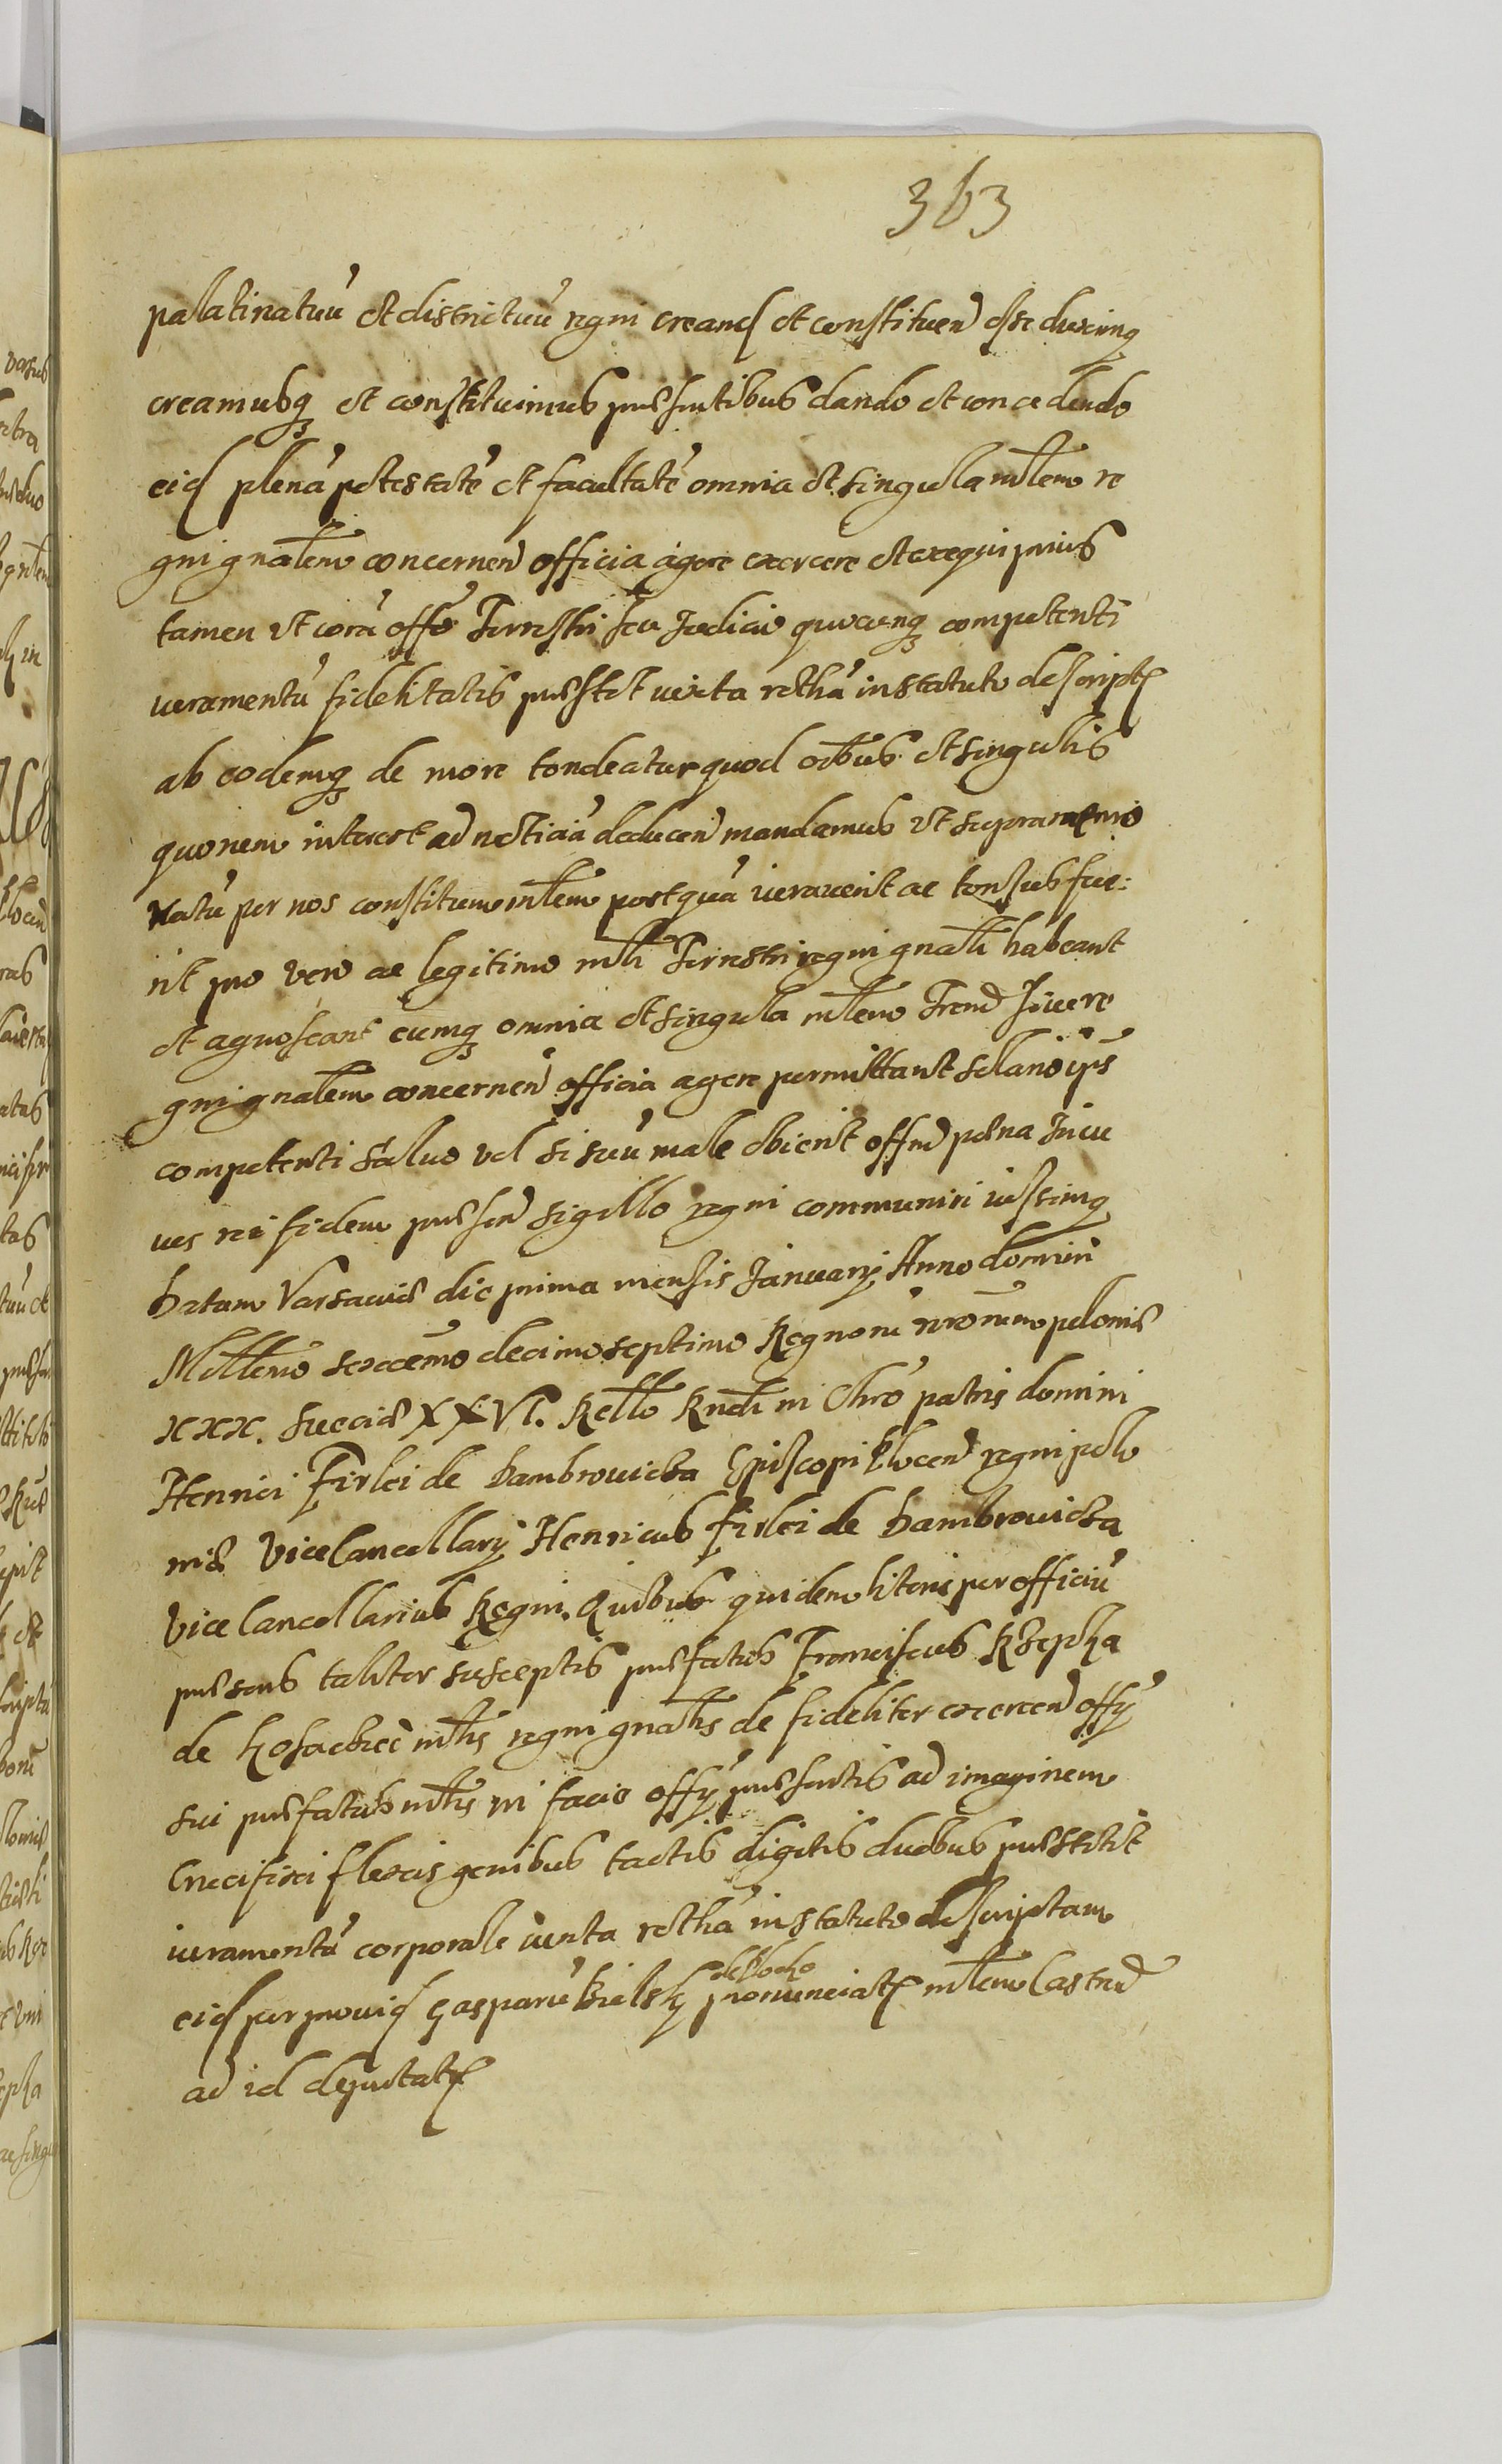 363
palatinatuu et districtuu regni creand et constituen esse duximq
creamusq et constituimus pnsentibus dando et concedendo
eid plena potestate et facultate omnia et singula mlem re
gni gnalem concernen officia agere exercere et exequi prius
tamen ut cora offo Terrestri seu Judicio quocunq competenti
iuramentu fidelitatis prestet iuxta rotha in statuto descript
ab eodemq de more tondeatur quod oibus et singulis
quorum interest ad noticia deducen mandamus ut supra nomi
natu per nos constitutum mlem postqua iuraverit ac tonsus fue:
rit pro vero ac legitimo mli Terrestri regni gnali habeant
et agnoscant eumq omnia et singula mlem Trend sive re
gni gnalem concernen officia agere permittant solario ips
competenti salvo vel si suu male obierit offm poena In cu
ius rei fidem presen sigillo regni communiri iussimq
Datum Varsaviae die prima mensis Januarij Anno domini
Millemo sexcemo decimo septimo Regnoru nrorum poloniae
XXX. Sueciae XXVI. Rello Rndi in Chro patris domini
Henrici Firlei de Dambrovicza Episcopi Plocen regni polo
niae Vicecancellarij Henricus Firlei de Dambrovicza
Vicecancellarius Regni. Quibus quidem literis per officiu
presens taliter susceptis prefatus Franciscus Rzepka
de Kosaczice mlis regni gnalis de fideliter exercen offy
sui prefatus mlis in facie offy presentis ad imaginem
Crucifixi flexis genibus tactis digitis duobus prestitit
iuramentu corporale iuxta rotha in statuto descriptam
de Plocko
eid per provid Gasparu Bielsky pronunciat mlem Castren
ad id deputat